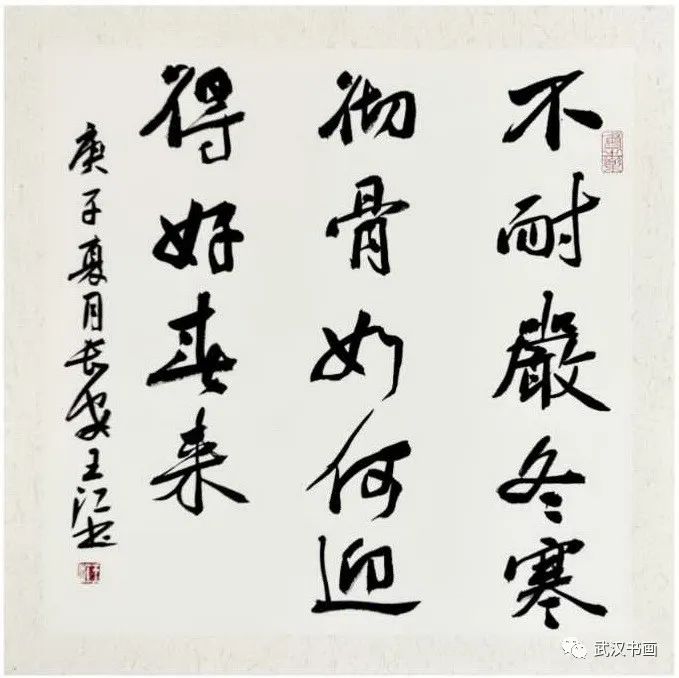 不耐嚴冬寒
彻骨如何迎
得好春来
庚子夏月长安王江书
武汉书画